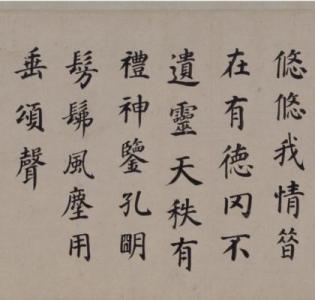 悠悠我情昔
在有德冈不
遺靈天秩有
禮神鑒孔明
髣髴風塵用
垂頌聲